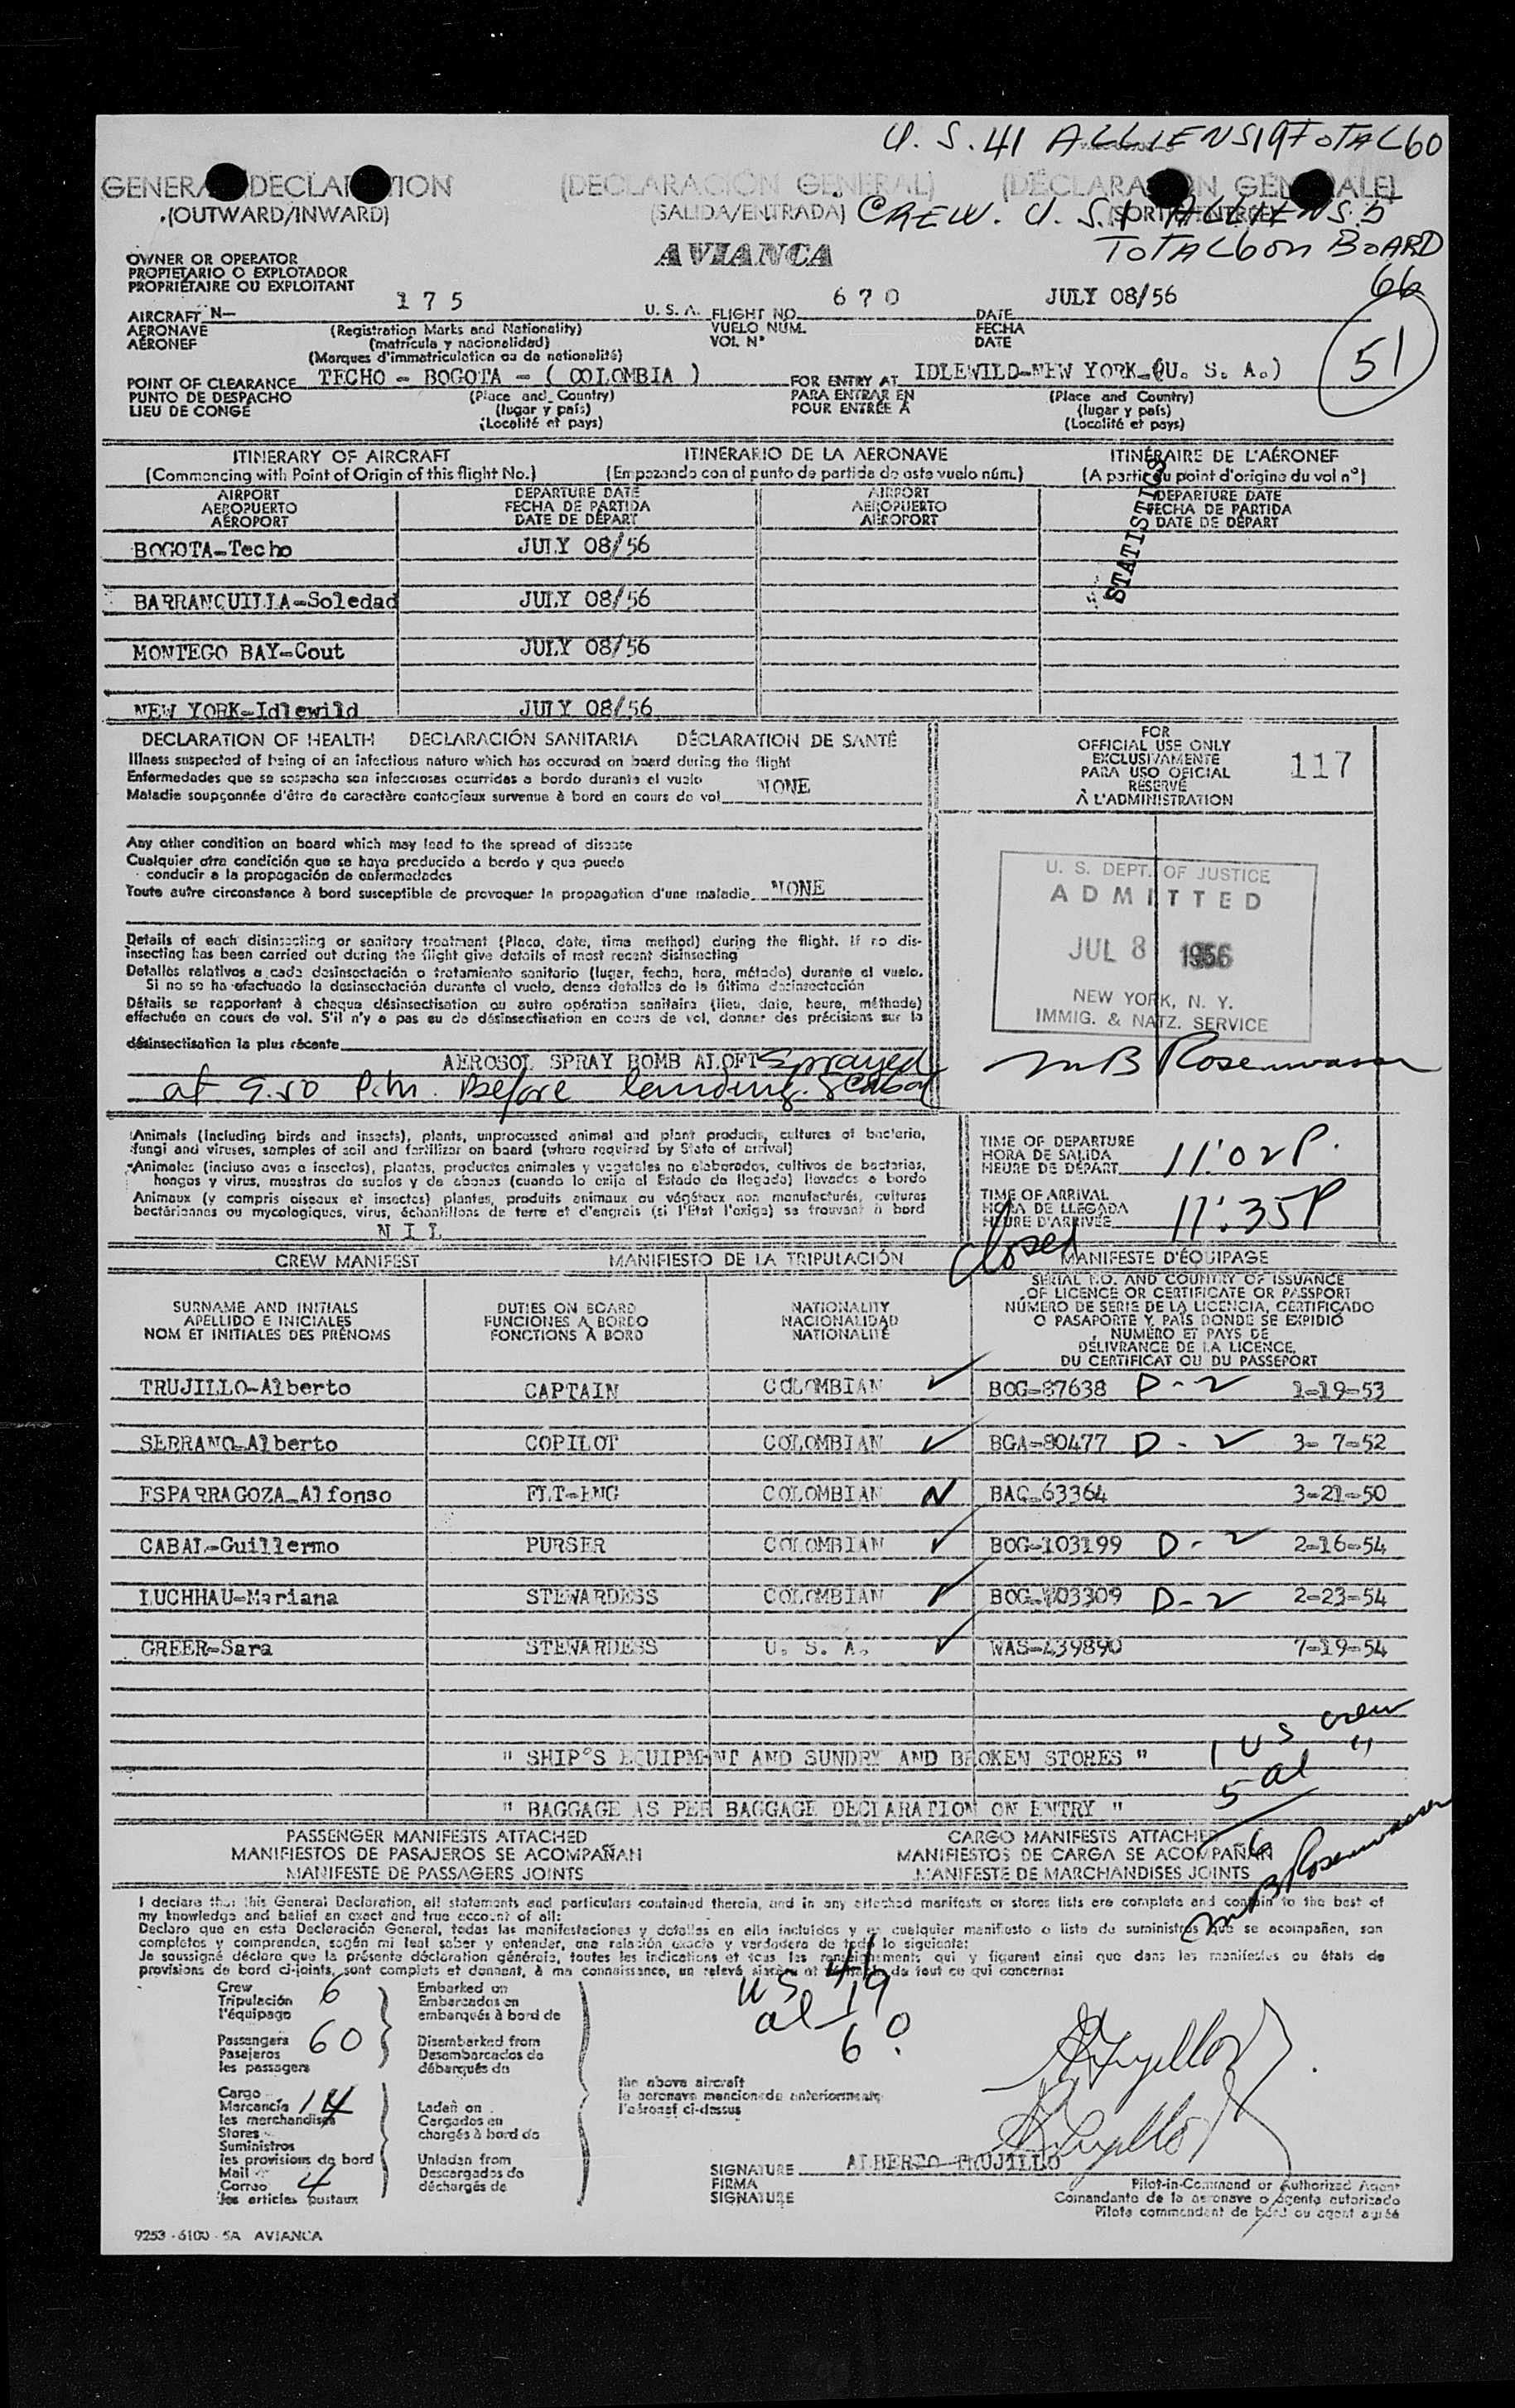 U.S. 41 ALLIENS 19 TOTAL 60
GENERAL DECLARATION (DECLARACIÓN GENERAL) (DÉCLARATION GÉNÉRALE)
(OUTWARD/INWARD) (SALIDA/ENTRADA) (SORTIE/ENTREE)
CREW. U.S. 1 ALLIENS. 5
AVIANCA
TOTAL 6 on BOARD
66
OWNER OR OPERATOR
PROPIETARIO O EXPLOTADOR
PROPRIÉTAIRE OU EXPLOITANT
AIRCRAFT N- 175 U. S. A. FLIGHT NO. 670 DATE JULY 08/56
AERONAVE (Registration Marks and Nationality) VUELO NÚM. FECHA
AÉRONEF (matrícula y nacionalidad) VOL Nº DATE
(Marques d'immatriculation ou de nationalité)
51
POINT OF CLEARANCE TECHO - BOGOTA - ( COLOMBIA ) FOR ENTRY AT IDLEWILD-NEW YORK-(U. S. A.)
PUNTO DE DESPACHO (Place and Country) PARA ENTRAR EN (Place and Country)
LIEU DE CONGÉ (lugar y país) POUR ENTRÉE A (lugar y país)
(Localité et pays) (Localité et pays)
ITINERARY OF AIRCRAFT ITINERARIO DE LA AERONAVE ITINÉRAIRE DE L'AÉRONEF
(Commencing with Point of Origin of this flight No.) (Empezando con el punto de partida de este vuelo núm.) (A partir du point d'origine du vol nº)
AIRPORT DEPARTURE DATE AIRPORT DEPARTURE DATE
AEROPUERTO FECHA DE PARTIDA AEROPUERTO FECHA DE PARTIDA
AÉROPORT DATE DE DÉPART AÉROPORT DATE DE DÉPART
STATISTICS
BOGOTA-Techo JULY 08/56
BARRANQUILLA-Soledad JULY 08/56
MONTEGO BAY-Cout JULY 08/56
NEW YORK-Idlewild JULY 08/56
DECLARATION OF HEALTH DECLARACIÓN SANITARIA DÉCLARATION DE SANTÉ
Illness suspected of being of an infectious nature which has occured on board during the flight
Enfermedades que se sospecha son infecciosas ocurridas a bordo durante el vuelo
Maladie soupçonnée d'être de caractère contagieux survenue à bord en cours de vol NONE
Any other condition on board which may lead to the spread of disease
Cualquier otra condición que se haya producido a bordo y que puede
conducir a la propagación de enfermedades
Toute autre circonstance à bord susceptible de provoquer la propagation d'une maladie NONE
Details of each disinsecting or sanitary treatment (Place, date, time method) during the flight. If no dis-
insecting has been carried out during the flight give details of most recent disinsecting
Detalles relativos a cada desinsectación o tratamiento sanitario (lugar, fecha, hora, método) durante el vuelo.
Si no se ha efectuado la desinsectación durante el vuelo, dense detalles de la última desinsectación
Détails se rapportant à chaque désinsectisation ou autre opération sanitaire (lieu, date, heure, méthode)
effectuée en cours de vol. S'il n'y a pas eu de désinsectisation en cours de vol, donner des précisions sur la
désinsectisation la plus récente
AEROSOL SPRAY BOMB ALOFT Sprayed
at 9.50 P.M. Before landing. GCabal
FOR
OFFICIAL USE ONLY
EXCLUSIVAMENTE
PARA USO OFICIAL
RÉSERVÉ
À L'ADMINISTRATION
117
U. S. DEPT. OF JUSTICE
ADMITTED
JUL 8 1956
NEW YORK, N. Y.
IMMIG. & NATZ. SERVICE
MB Rosenwasser
Animals (including birds and insects), plants, unprocessed animal and plant products, cultures of bacteria,
fungi and viruses, samples of soil and fertilizer on board (where required by State of arrival)
Animales (incluso aves e insectos), plantas, productos animales y vegetales no elaborados, cultivos de bacterias,
hongos y virus, muestras de suelos y de abonos (cuando lo exija el Estado de llegada) llevados a bordo
Animaux (y compris oiseaux et insectes) plantes, produits animaux ou végétaux non manufacturés, cultures
bactériennes ou mycologiques, virus, échantillons de terre et d'engrais (si l'Etat l'exige) se trouvant à bord
NIL
TIME OF DEPARTURE
HORA DE SALIDA
HEURE DE DÉPART 11:02 P.
TIME OF ARRIVAL
HORA DE LLEGADA
HEURE D'ARRIVÉE 11:35P
closed
CREW MANIFEST MANIFIESTO DE LA TRIPULACIÓN MANIFESTE D'ÉQUIPAGE
SURNAME AND INITIALS
APELLIDO E INICIALES
NOM ET INITIALES DES PRÉNOMS
DUTIES ON BOARD
FUNCIONES A BORDO
FONCTIONS À BORD
NATIONALITY
NACIONALIDAD
NATIONALITÉ
SERIAL NO. AND COUNTRY OF ISSUANCE
OF LICENCE OR CERTIFICATE OR PASSPORT
NÚMERO DE SERIE DE LA LICENCIA, CERTIFICADO
O PASAPORTE Y PAÍS DONDE SE EXPIDIÓ
NUMÉRO ET PAYS DE
DÉLIVRANCE DE LA LICENCE,
DU CERTIFICAT OU DU PASSEPORT
TRUJILLO-Alberto CAPTAIN COLOMBIAN ✓ BOG-87638 D-2 1-19-53
SERRANO-Alberto COPILOT COLOMBIAN ✓ BGA-80477 D-2 3- 7-52
ESPARRAGOZA-Alfonso FLT-ENG COLOMBIAN N BAC-63364 3-21-50
CABAL-Guillermo PURSER COLOMBIAN ✓ BOG-103199 D-2 2-16-54
LUCHHAU-Mariana STEWARDESS COLOMBIAN ✓ BOG-103309 D-2 2-23-54
GREER-Sara STEWARDESS U. S. A. ✓ WAS-439890 7-19-54
" SHIP'S EQUIPMENT AND SUNDRY AND BROKEN STORES "
1 US crew
5 al "
6
MB Rosenwasser
" BAGGAGE AS PER BAGGAGE DECLARATION ON ENTRY "
PASSENGER MANIFESTS ATTACHED CARGO MANIFESTS ATTACHED
MANIFIESTOS DE PASAJEROS SE ACOMPAÑAN MANIFIESTOS DE CARGA SE ACOMPAÑAN
MANIFESTE DE PASSAGERS JOINTS MANIFESTE DE MARCHANDISES JOINTS
I declare that this General Declaration, all statements and particulars contained therein, and in any attached manifests or stores lists are complete and contain to the best of
my knowledge and belief an exact and true account of all:
Declaro que en esta Declaración General, todas las manifestaciones y detalles en ella incluidos y en cualquier manifiesto o lista de suministros que se acompañen, son
completos y comprenden, según mi leal saber y entender, una relación exacta y verdadera de todo lo siguiente:
Je soussigné déclare que la présente déclaration générale, toutes les indications et tous les renseignements qui y figurent ainsi que dans les manifestes ou états de
provisions de bord ci-joints, sont complets et donnent, à ma connaissance, un relevé sincère et de tout ce qui concerne:
US 41
al 19
60
Crew
Tripulación 6
l'équipage
Passengers
Pasajeros 60
les passagers
Embarked on
Embarcados en
embarqués à bord de
Disembarked from
Desembarcados de
débarqués de
Cargo
Mercancía 14
les marchandises
Stores
Suministros
les provisions de bord
Mail
Correo 4
les articles postaux
Laden on
Cargados en
chargés à bord de
Unladen from
Descargados de
déchargés de
the above aircraft
la aeronave mencionada anteriormente
l'aéronef ci-dessus
ATrujillo
ATrujillo
SIGNATURE ALBERTO TRUJILLO
FIRMA
SIGNATURE
Pilot-in-Command or Authorized Agent
Comandante de la aeronave o agente autorizado
Pilote commandant de bord ou agent agréé
9253 - 6100 - 5A AVIANCA